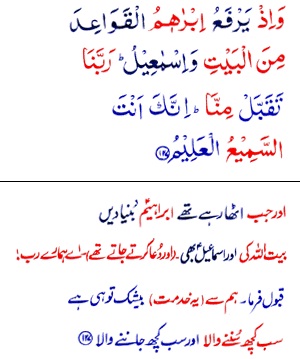 وَاِذْ يَرْفَعُ اِبْرٰهٖمُ الْقَوَاعِدَ
مِنَ الْبَيْتِ وَاِسْمٰعِيْلُ ؕ رَبَّنَا
تَقَبَّلْ مِنَّا ؕ اِنَّكَ اَنْتَ
السَّمِيْعُ الْعَلِيْمُ ﴿۱۲۷﴾
اور جب اٹھا رہے تھے ابراہیمؑ بنیادیں
بیت اللہ کی اور اسماعیلؑ بھی۔ (اور دُعا کرتے جاتے تھے) اے ہمارے رب!
قبول فرما۔ ہم سے (یہ خدمت) بیشک تو ہی ہے
سب کچھ سُننے والا اور سب کچھ جاننے والا ﴿۱۲۷﴾